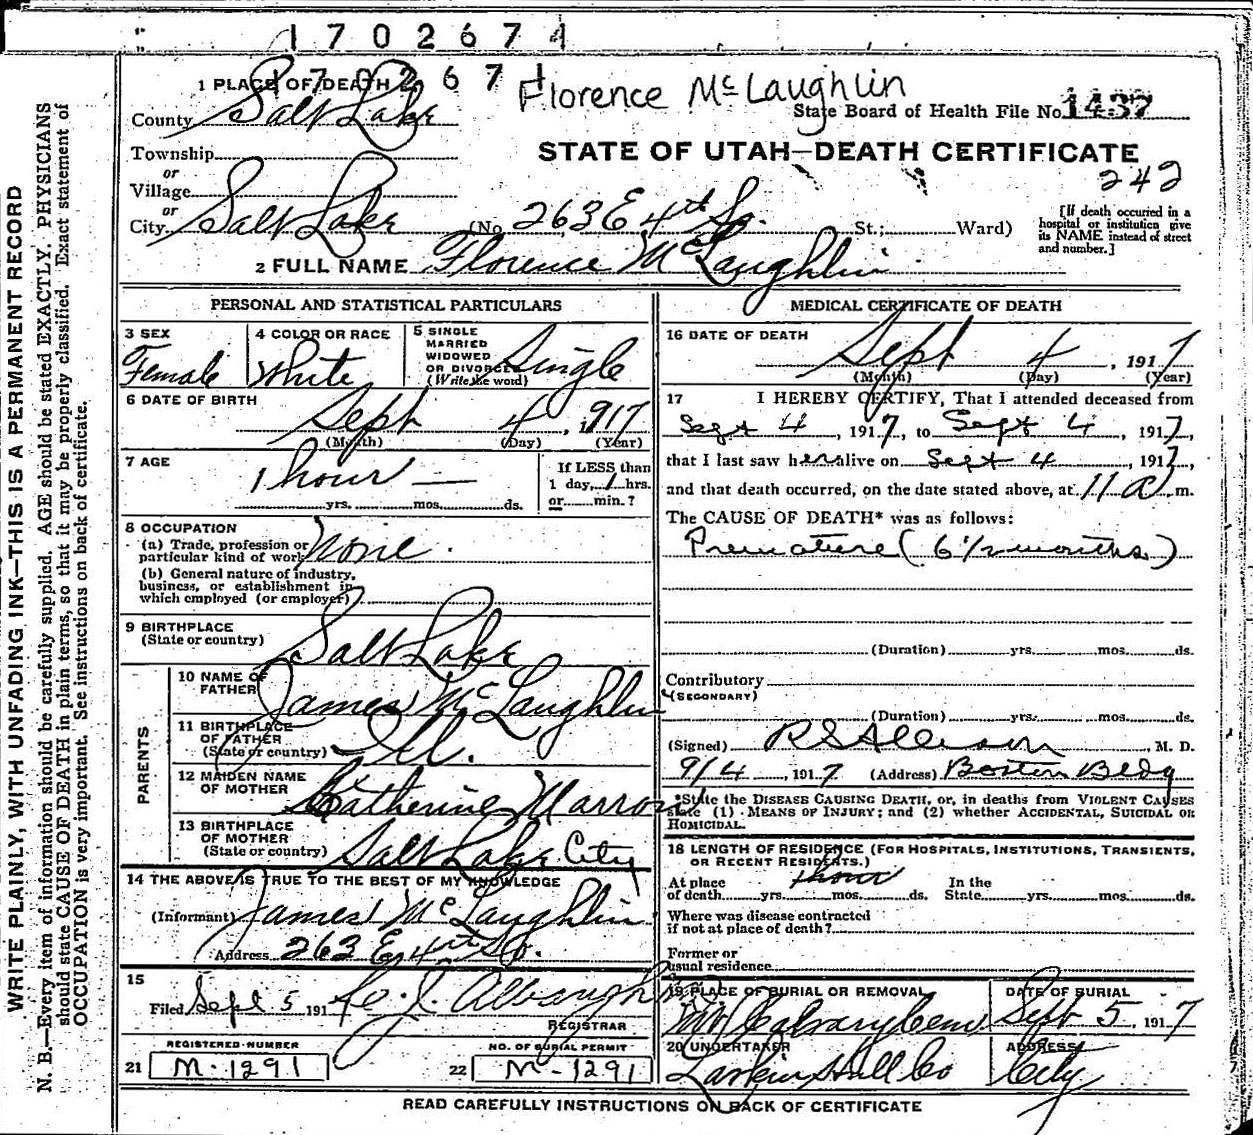 1702674
1 PLACE OF DEATH 1702671
Florence McLaughlin
County Salt Lake
State Board of Health File No. 1437
Township
or
Village
or
City Salt Lake
STATE OF UTAH—DEATH CERTIFICATE
242
(No. 263 E 4th So. St.; Ward)
[If death occurred in a
hospital or institution give
its NAME instead of street
and number.]
2 FULL NAME Florence McLaughlin
PERSONAL AND STATISTICAL PARTICULARS
3 SEX
Female
4 COLOR OR RACE
White
5 SINGLE
MARRIED
WIDOWED
OR DIVORCED
(Write the word)
Single
6 DATE OF BIRTH
Sept 4, 1917
(Month) (Day) (Year)
7 AGE
1 hour —
yrs. mos. ds.
If LESS than
1 day, 1 hrs.
or min.?
8 OCCUPATION
(a) Trade, profession or
particular kind of work None.
(b) General nature of industry,
business, or establishment in
which employed (or employer)
9 BIRTHPLACE
(State or country)
Salt Lake
PARENTS
10 NAME OF
FATHER
James McLaughlin
11 BIRTHPLACE
OF FATHER
(State or country)
Ill.
12 MAIDEN NAME
OF MOTHER
Katherine Marron
13 BIRTHPLACE
OF MOTHER
(State or country)
Salt Lake City
14 THE ABOVE IS TRUE TO THE BEST OF MY KNOWLEDGE
(Informant) James McLaughlin
Address 263 E. 4th So.
15
Filed Sept 5 191
REGISTRAR
REGISTERED NUMBER
21 M-1291
NO. OF BURIAL PERMIT
22 M-1291
MEDICAL CERTIFICATE OF DEATH
16 DATE OF DEATH
Sept 4, 1917
(Month) (Day) (Year)
17 I HEREBY CERTIFY, That I attended deceased from
Sept 4, 1917, to Sept 4, 1917,
that I last saw her alive on Sept 4, 1917,
and that death occurred, on the date stated above, at 11 a m.
The CAUSE OF DEATH* was as follows:
Premature (6 1/2 months)
(Duration) yrs. mos. ds.
Contributory
(SECONDARY)
(Duration) yrs. mos. ds.
(Signed) R S Allison, M. D.
9/4, 1917 (Address) Boston Bldg
*State the DISEASE CAUSING DEATH, or, in deaths from VIOLENT CAUSES
state (1) MEANS OF INJURY; and (2) whether ACCIDENTAL, SUICIDAL OR
HOMICIDAL.
18 LENGTH OF RESIDENCE (FOR HOSPITALS, INSTITUTIONS, TRANSIENTS,
OR RECENT RESIDENTS.)
1 hour
At place
of death yrs. mos. ds.
In the
State yrs. mos. ds.
Where was disease contracted
if not at place of death?
Former or
usual residence
19 PLACE OF BURIAL OR REMOVAL
Mt Calvary Cem
DATE OF BURIAL
Sept 5, 1917
20 UNDERTAKER
Larkin Hull Co
ADDRESS
City
READ CAREFULLY INSTRUCTIONS ON BACK OF CERTIFICATE
WRITE PLAINLY, WITH UNFADING INK—THIS IS A PERMANENT RECORD
N. B.—Every item of information should be carefully supplied. AGE should be stated EXACTLY. PHYSICIANS
should state CAUSE OF DEATH in plain terms, so that it may be properly classified. Exact statement of
OCCUPATION is very important. See instructions on back of certificate.